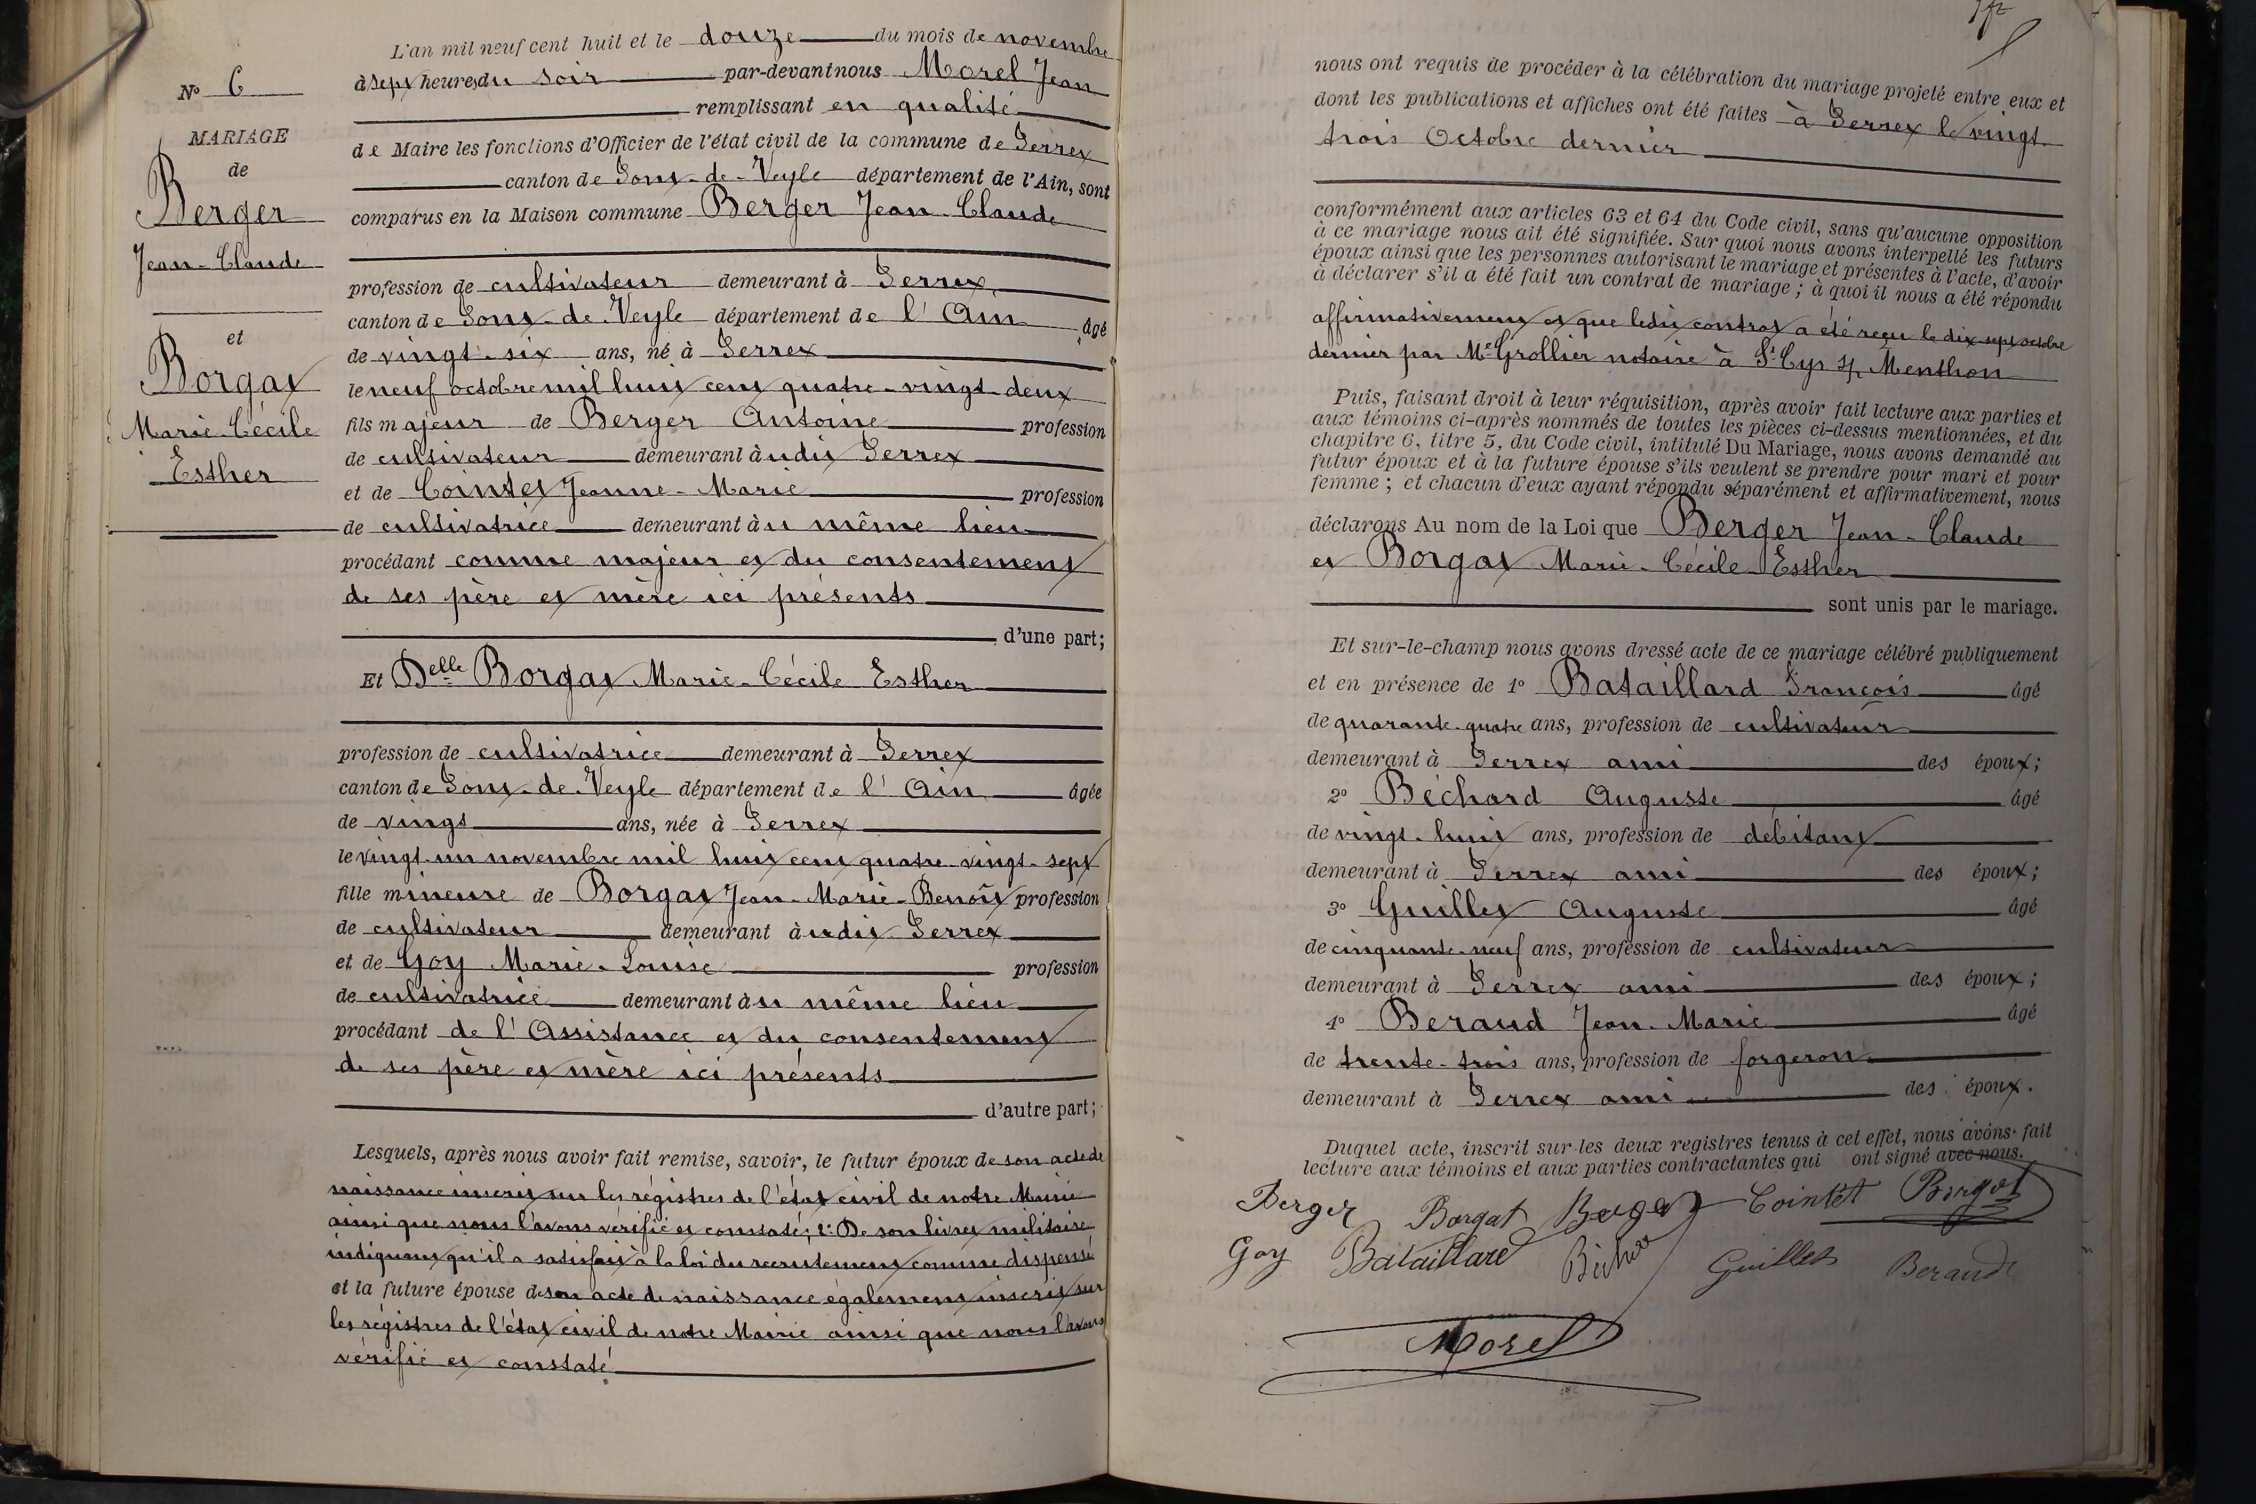 N° 6
MARIAGE
de
Berger
Jean-Claude
et
Borgat
Marie-Cécile
Esther
L'an mil neuf cent huit et le douze du mois de novembre
à sept heures du soir par-devant nous Morel Jean
remplissant en qualité
de Maire les fonctions d'Officier de l'état civil de la commune de Perrex
canton de Pont-de-Veyle département de l'Ain, sont
comparus en la Maison commune Berger Jean-Claude
profession de cultivateur demeurant à Perrex
canton de Pont-de-Veyle département de l'Ain âgé
de vingt-six ans, né à Perrex
le neuf octobre mil huit cent quatre-vingt-deux
fils majeur de Berger Antoine profession
de cultivateur demeurant à udit Perrex
et de Cointet Jeanne-Marie profession
de cultivatrice demeurant à u même lieu
procédant comme majeur et du consentement
de ses père et mère ici présents
d'une part;
Et Delle Borgat Marie-Cécile Esther
profession de cultivatrice demeurant à Perrex
canton de Pont-de-Veyle département de l'Ain âgée
de vingt ans, née à Perrex
le vingt-un novembre mil huit cent quatre-vingt-sept
fille mineure de Borgat Jean-Marie-Benoît profession
de cultivateur demeurant à udit Perrex
et de Goy Marie-Louise profession
de cultivatrice demeurant à u même lieu
procédant de l'Assistance et du consentement
de ses père et mère ici présents
d'autre part;
Lesquels, après nous avoir fait remise, savoir, le futur époux de son acte de
naissance inscrit sur les régistres de l'état civil de notre Mairie
ainsi que nous l'avons vérifié et constaté; 2° De son livret militaire
indiquant qu'il a satisfait à la loi du recrutement comme dispensé
et la future épouse de son acte de naissance également inscrit sur
les régistres de l'état civil de notre Mairie ainsi que nous l'avons
vérifié et constaté
nous ont requis de procéder à la célébration du mariage projeté entre eux et
dont les publications et affiches ont été faites à Perrex le vingt-
trois Octobre dernier
conformément aux articles 63 et 64 du Code civil, sans qu'aucune opposition
à ce mariage nous ait été signifiée. Sur quoi nous avons interpellé les futurs
époux ainsi que les personnes autorisant le mariage et présentes à l'acte, d'avoir
à déclarer s'il a été fait un contrat de mariage; à quoi il nous a été répondu
affirmativement et que ledit contrat a été reçu le dix-sept octobre
dernier par Me Grollier notaire à St Cyr s/ Menthon
Puis, faisant droit à leur réquisition, après avoir fait lecture aux parties et
aux témoins ci-après nommés de toutes les pièces ci-dessus mentionnées, et du
chapitre 6, titre 5, du Code civil, intitulé Du Mariage, nous avons demandé au
futur époux et à la future épouse s'ils veulent se prendre pour mari et pour
femme; et chacun d'eux ayant répondu séparément et affirmativement, nous
déclarons Au nom de la Loi que Berger Jean-Claude
et Borgat Marie-Cécile Esther
sont unis par le mariage.
Et sur-le-champ nous avons dressé acte de ce mariage célébré publiquement
et en présence de 1° Bataillard François âgé
de quarante-quatre ans, profession de cultivateur
demeurant à Perrex ami des époux;
2° Béchard Auguste âgé
de vingt-huit ans, profession de débitant
demeurant à Perrex ami des époux;
3° Guillet Auguste âgé
de cinquante-neuf ans, profession de cultivateur
demeurant à Perrex ami des époux;
4° Beraud Jean-Marie âgé
de trente-trois ans, profession de forgeron
demeurant à Perrex ami des époux.
Duquel acte, inscrit sur les deux registres tenus à cet effet, nous avons fait
lecture aux témoins et aux parties contractantes qui ont signé avec nous.
Berger Borgat Berger Cointet Borgat
Goy Bataillard Béchard Guillet Beraud
Morel